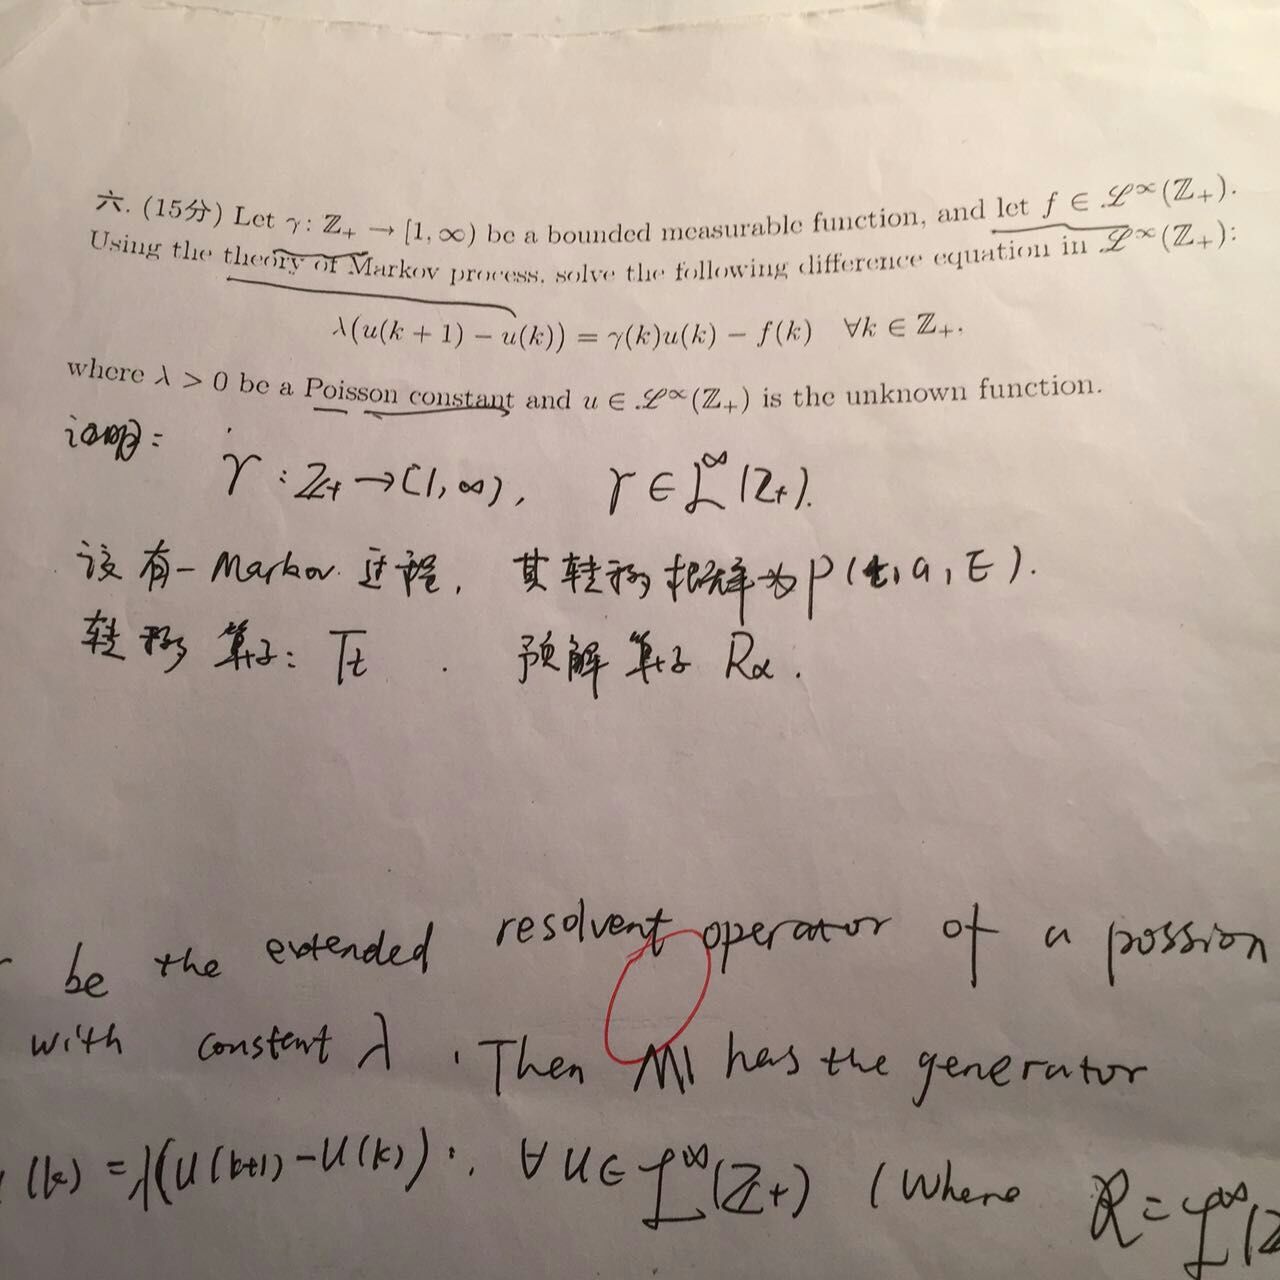 六. (15分) Let γ: ℤ₊ → [1, ∞) be a bounded measurable function, and let f ∈ ℒ^∞(ℤ₊).
Using the theory of Markov process, solve the following difference equation in ℒ^∞(ℤ₊):
λ(u(k + 1) − u(k)) = γ(k)u(k) − f(k) ∀k ∈ ℤ₊.
where λ > 0 be a Poisson constant and u ∈ ℒ^∞(ℤ₊) is the unknown function.
证明:
γ : ℤ₊ → [1, ∞), γ ∈ ℒ^∞(ℤ₊).
设有一 Markov 过程, 其转移概率为 P(t, a, E).
转移算子: Tt . 预解算子 Rα.
be the extended resolvent operator of a possion
with constant λ . Then M has the generator
(k) = λ(u(k+1) − u(k)) ∴ ∀ u ∈ ℒ^∞(ℤ₊) (where R = ℒ^∞(ℤ